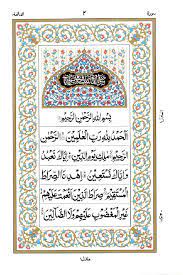 بِسْمِ اللهِ الرَّحْمٰنِ الرَّحِيْمِ
اَلْحَمْدُ لِلّٰهِ رَبِّ الْعٰلَمِيْنَ ۙ الرَّحْمٰنِ
الرَّحِيْمِ ۙ مٰلِكِ يَوْمِ الدِّيْنِ ۭ اِيَّاكَ نَعْبُدُ
وَاِيَّاكَ نَسْتَعِيْنُ ۭ اِهْدِنَا الصِّرَاطَ
الْمُسْتَقِيْمَ ۙ صِرَاطَ الَّذِيْنَ اَنْعَمْتَ عَلَيْهِمْ
غَيْرِ الْمَغْضُوْبِ عَلَيْهِمْ وَلَا الضَّآلِّيْنَ